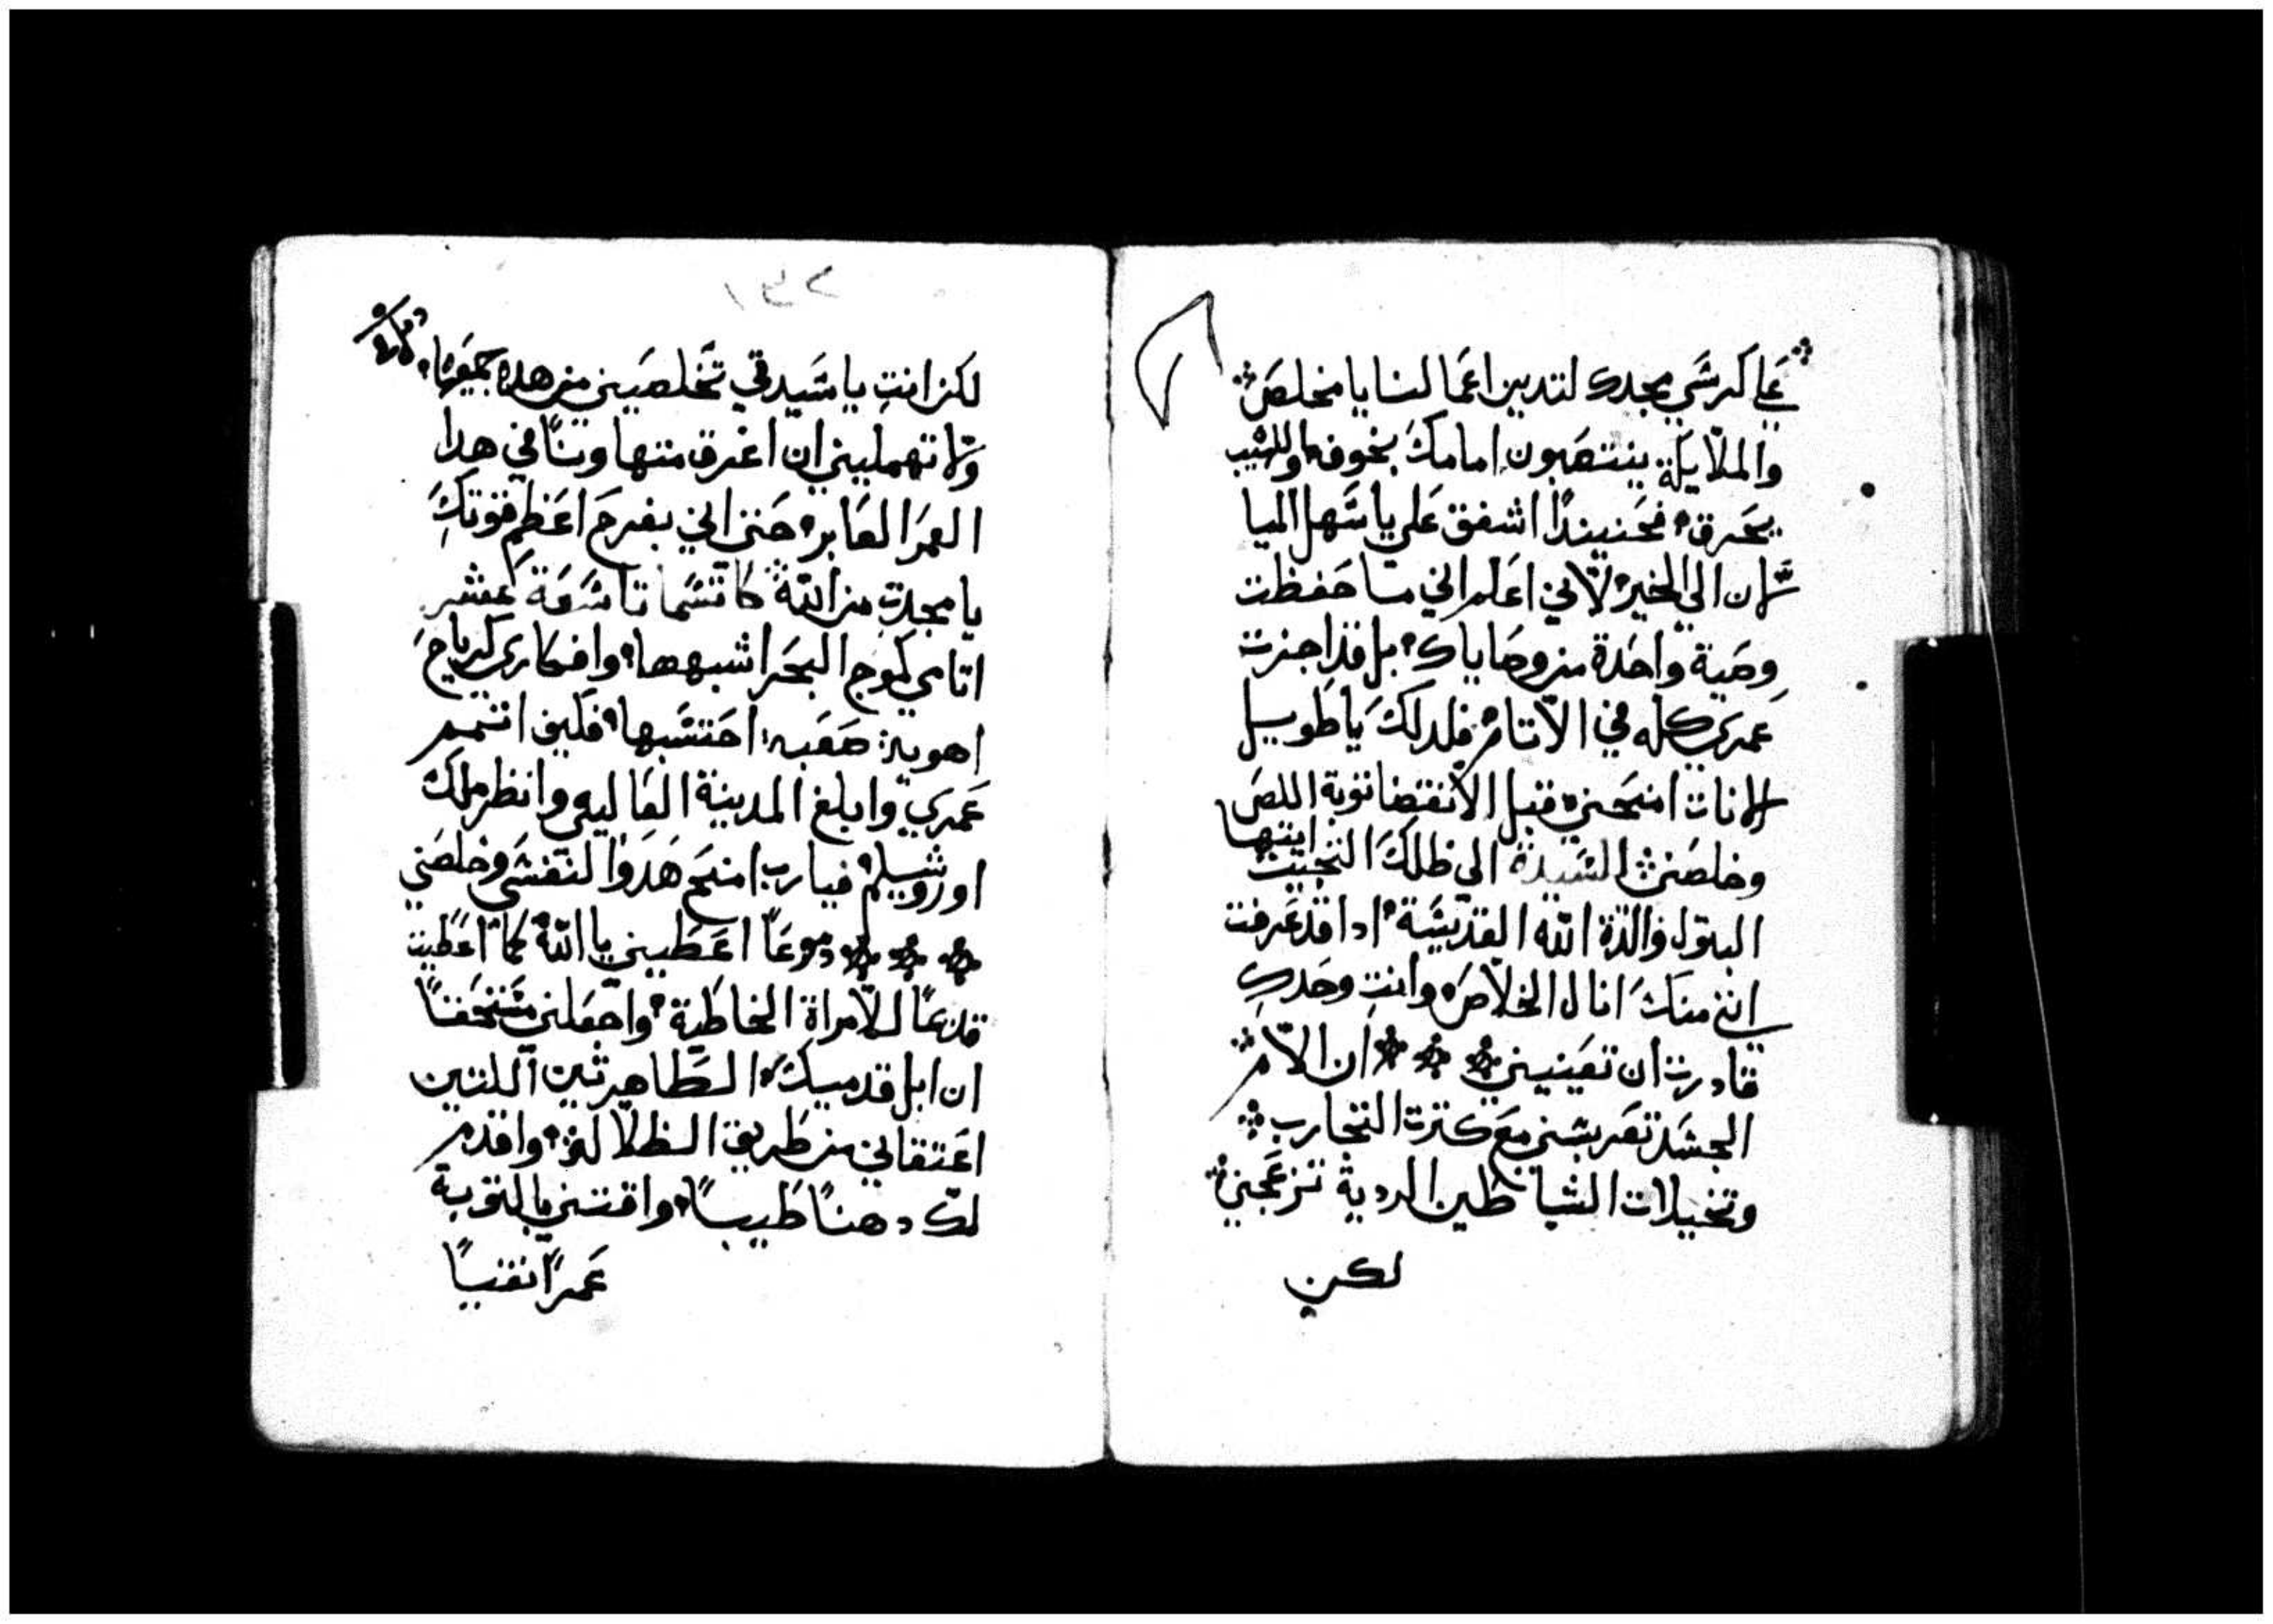 علي كرسي مجدك لتدين اعمالنا يا مخلص
والملايكة ينتصبون امامك بخوف واللهيب
يحرق فحنيندًا اشفق علي يا سهل الميا
لان الي الخير لاني اعلم اني ما حفظت
وصية واحدة من وصاياك بل قد اجزت
عمري كله في الاتام فلدلك يا طويل
الانات امنحني قبل الانقضا توبة اللص
وخلصني السيدة الي ظلك التجيت ايتها
البتول والدة الله القديسة ادا قد عرفت
انني منك انال الخلاص وانتِ وحدكِ
قادرت ان تعينيني ان الام
الجسد تعربسني مع كترت التجارب
وتخيلات الشياطين الردية تزعجني
لكن
١٣٢
لكن انتِ يا سيدتي تخلصيني من هده جميعها
ولا تهمليني ان اغرق منها وسًا في هدا
العمر العابر حتي اني بفرح اعظم قوتكِ
يا ممجدت من الله كاتسما تاسعة عشر
اتامي كموج البحر اشبهها وافكاري كرياح
اهوية صعبه احتسبها فكيف اتمم
عمري وابلغ المدينة العاليه وانظر ملك
اوروشيلم فيارب امنح هدوا لنفسي وخلصني
دموعًا اعطيني يا الله كما اعطيت
قديمًا للامراة الخاطية واجعلني مستحقًا
ان ابل قدميك الطاهرتين اللتين
اعتقاني من طريق الظلالة واقدم
لك دهنًا طيبًا واقتني بالتوبة
عمرًا نقيًا